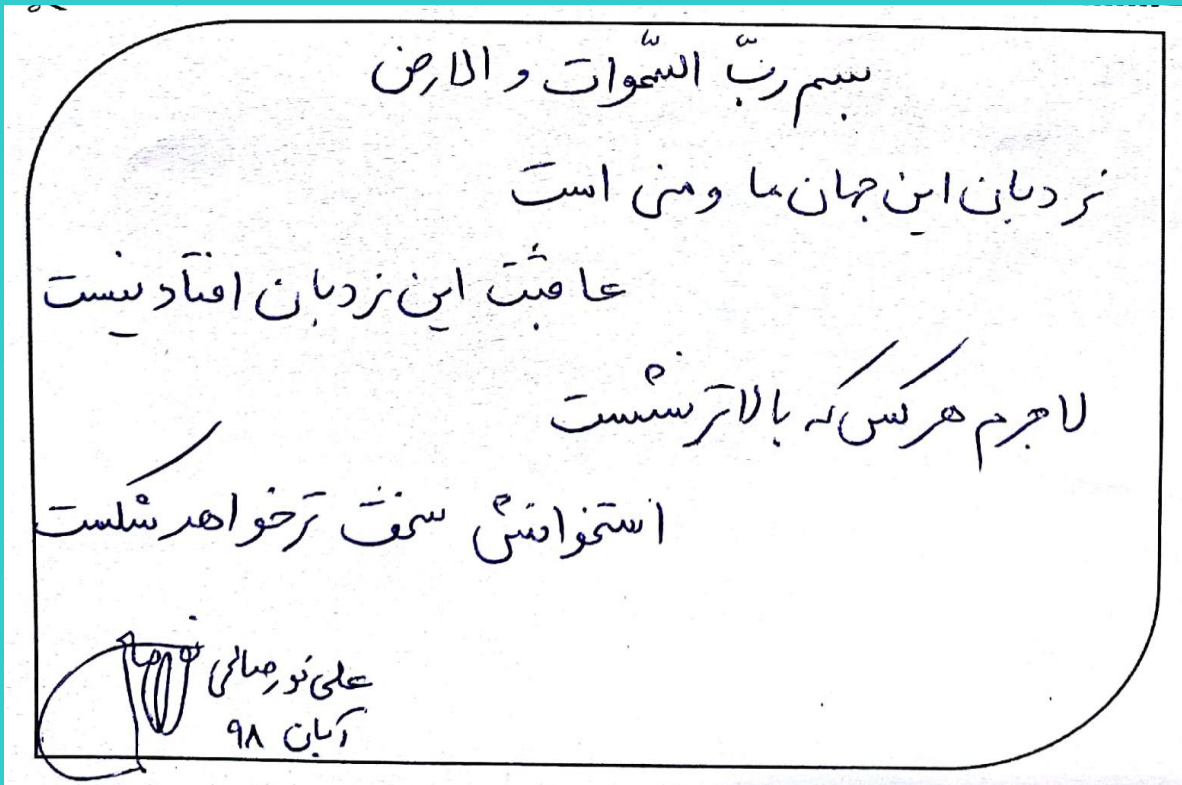 بسم ربّ السّموات و الارض
نردبان این جهان ما و منی است
عاقبت این نردبان افتادنیست
لاجرم هر کس که بالاتر نشست
استخوانش سخت تر خواهد شکست
علی نورصالحی
آبان ۹۸